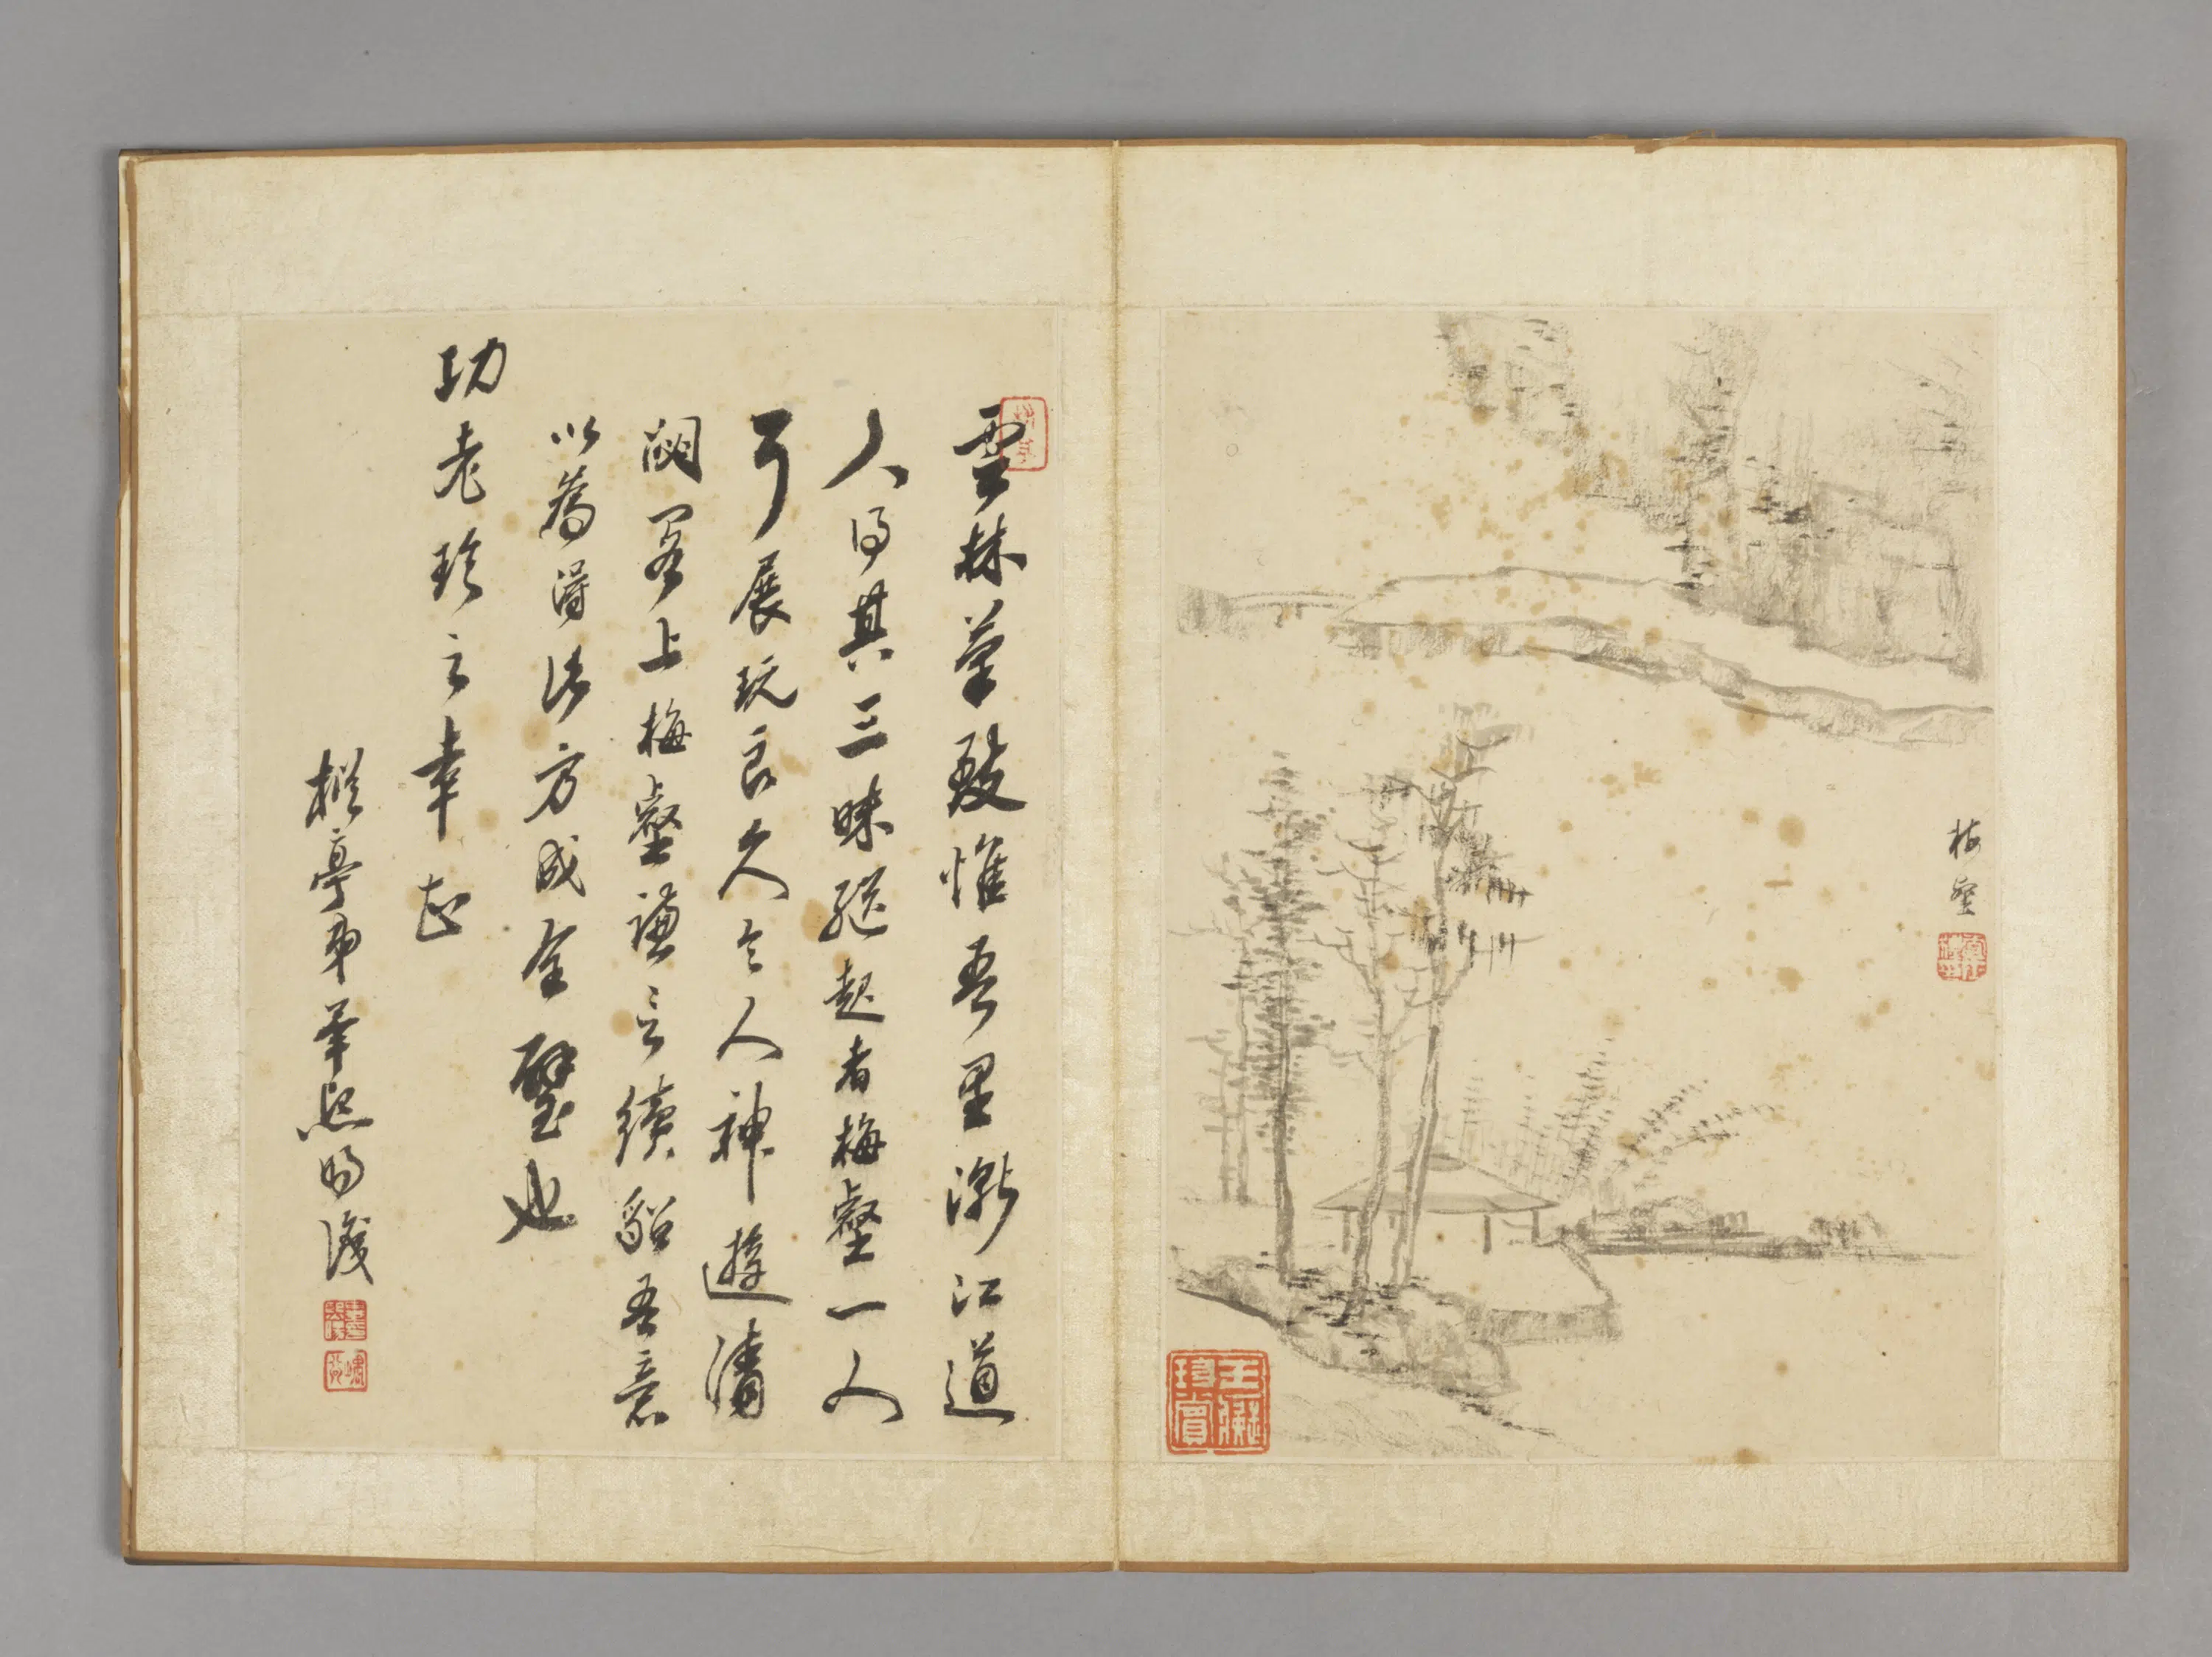 雲林筆致惟吾里漸江道
人得其三昧繼起者梅壑一人
耳展玩良久令人神遊清
閟閣上梅壑謙言續貂吾意
以為得此方成全璧也
功老珍之幸甚
弟
梅壑
王
珍賞